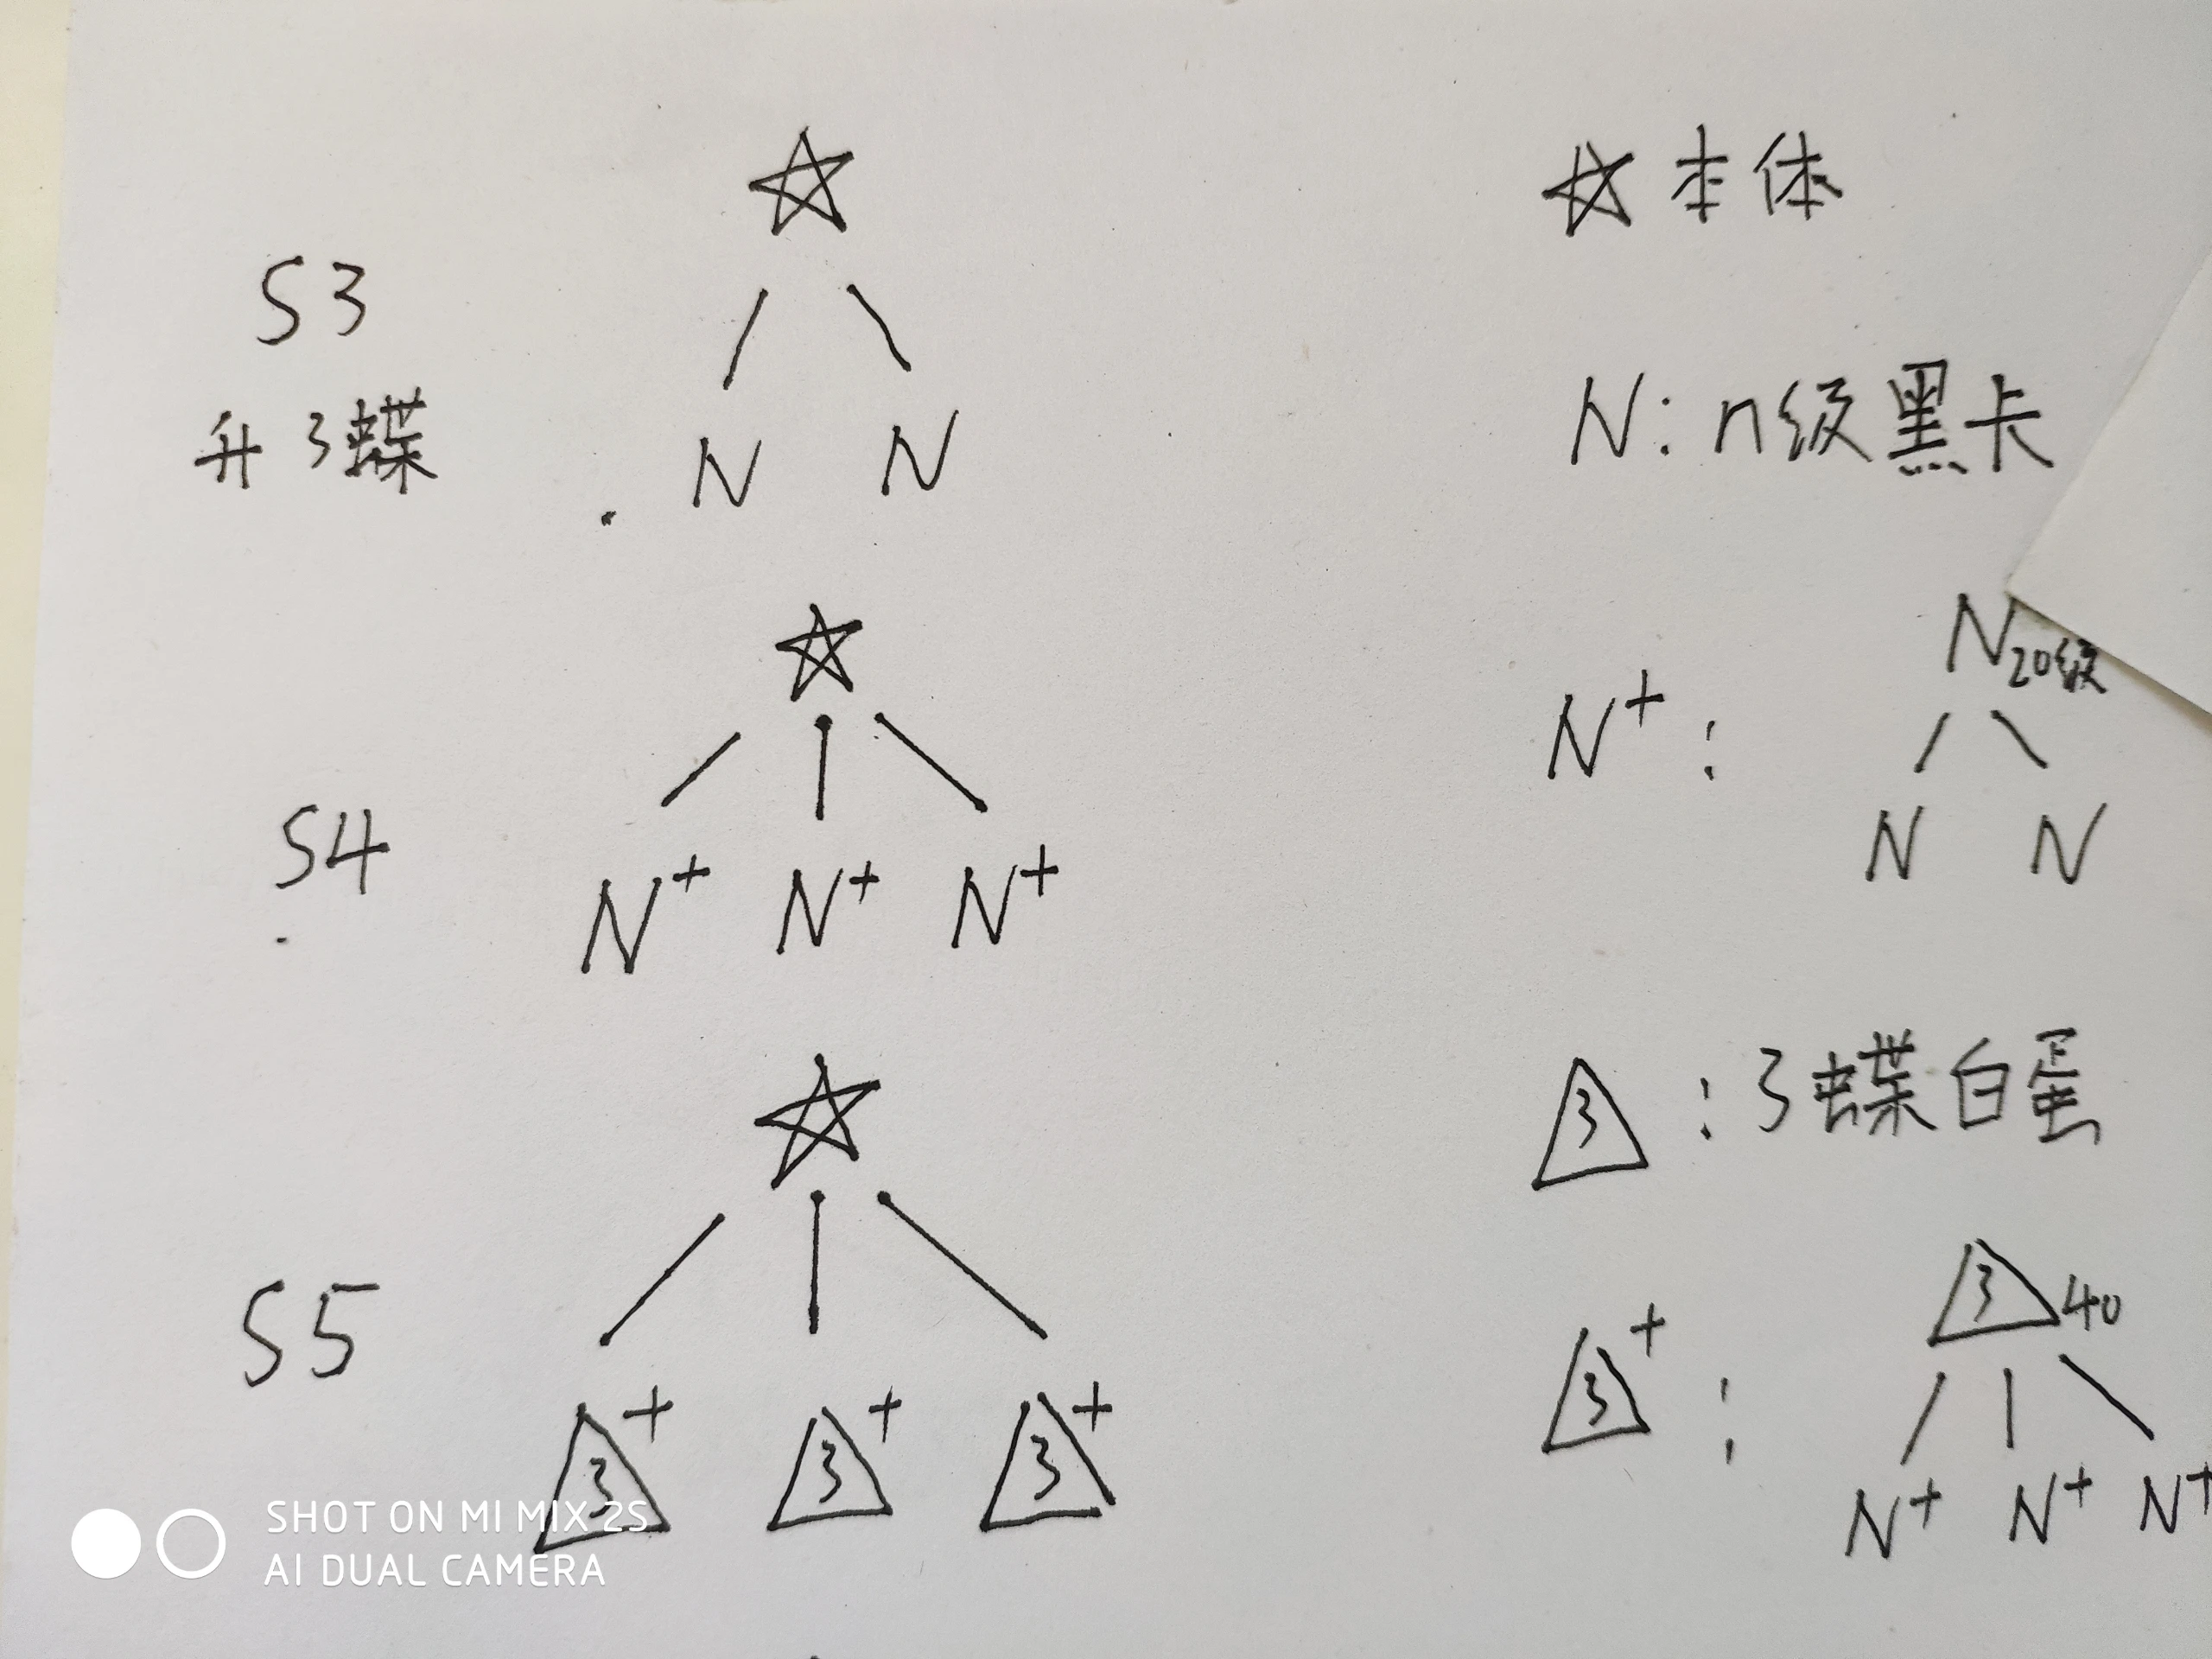 ☆ 本体
S3
升 3蝶
N N
N: n级黑卡
N20级
N+:
N N
S4
N+ N+ N+
3 : 3蝶白蛋
S5
3 40
3+ :
3+ 3+ 3+
N+ N+ N+
SHOT ON MI MIX 2S
AI DUAL CAMERA